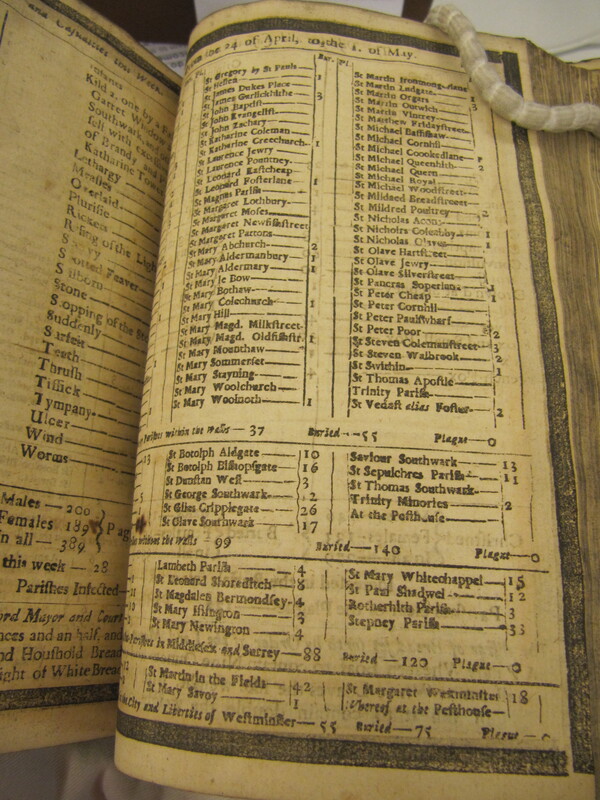 and Casualties this Week.
Kild
fell with
of Brandy
Katharine
Lethargy
Measles
Overlaid
Plurisie
Rickets
Rising of the Ligh
Spotted Feaver
Stilborn
Stone
Stopping of the
Suddenly
Surfeit
Teeth
Thrush
Tissick
Tympany
Ulcer
Wind
Worms
Males — 200
Females 189
in all — 389
Plag
this week — 28
Parishes Infected
ord Mayor and Court
nces and an half, and
nd Houshold Bread
ight of White Bread
the 24 of April, to the 1. of May.
Bur. Pl.
St Gregory by St Pauls 1
St Hellen
St James Dukes Place
St James Garlickhithe 3
St John Baptist
St John Evangelist
St John Zachary
St Katharine Coleman
St Katharine Creechurch 1
St Laurence Jewry
St Laurence Pountney
St Leonard Eastcheap
St Leonard Fosterlane 1
St Magnus Parish
St Margaret Lothbury
St Margaret Moses
St Margaret Newfishstreet
St Margaret Pattons
St Mary Abchurch 2
St Mary Aldermanbury 1
St Mary Aldermary 1
St Mary le Bow
St Mary Bothaw
St Mary Colechurch 1
St Mary Hill
St Mary Magd. Milkstreet
St Mary Magd. Oldfishstr 1
St Mary Mounthaw
St Mary Sommerset
St Mary Stayning
St Mary Woolchurch
St Mary Woolnoth 1
St Martin Ironmongerlane
St Martin Ludgate 1
St Martin Orgars 3
St Martin Outwich
St Martin Vintrey
St Matthew Fridaystreet
St Michael Bassishaw
St Michael Cornhil
St Michael Crookedlane
St Michael Queenhith 2
St Michael Quern
St Michael Royal
St Michael Woodstreet
St Mildred Breadstreet
St Mildred Poultrey 2
St Nicholas Acon
St Nicholas Coleabby 1
St Nicholas Olaves 1
St Olave Hartstreet
St Olave Jewry
St Olave Silverstreet
St Pancras Soperlane 1
St Peter Cheap 1
St Peter Cornhil
St Peter Paulswharf
St Peter Poor 2
St Steven Colemanstreet 3
St Steven Walbrook 2
St Swithin 1
St Thomas Apostle
Trinity Parish
St Vedast alias Foster 2
Parishes within the Walls — 37 Buried — 55 Plague — 0
St Botolph Aldgate 10
St Botolph Bishopsgate 16
St Dunstan West 3
St George Southwark 2
St Giles Cripplegate 26
St Olave Southwark 17
Saviour Southwark 13
St Sepulchres Parish 11
St Thomas Southwark
Trinity Minories 2
At the Pesthouse
without the Walls — 99 Buried — 140 Plague — 0
Lambeth Parish 4
St Leonard Shoreditch 8
St Magdalen Bermondsey 4
St Mary Islington 3
St Mary Newington 4
St Mary Whitechappel 15
St Paul Shadwel 12
Rotherhith Parish 3
Stepney Parish 33
Parishes in Middlesex and Surrey — 88 Buried — 120 Plague — 0
St Martin in the Fields 42
St Mary Savoy 1
St Margaret Westminster 18
Whereof at the Pesthouse
City and Liberties of Westminster — 55 Buried — 75 Plague